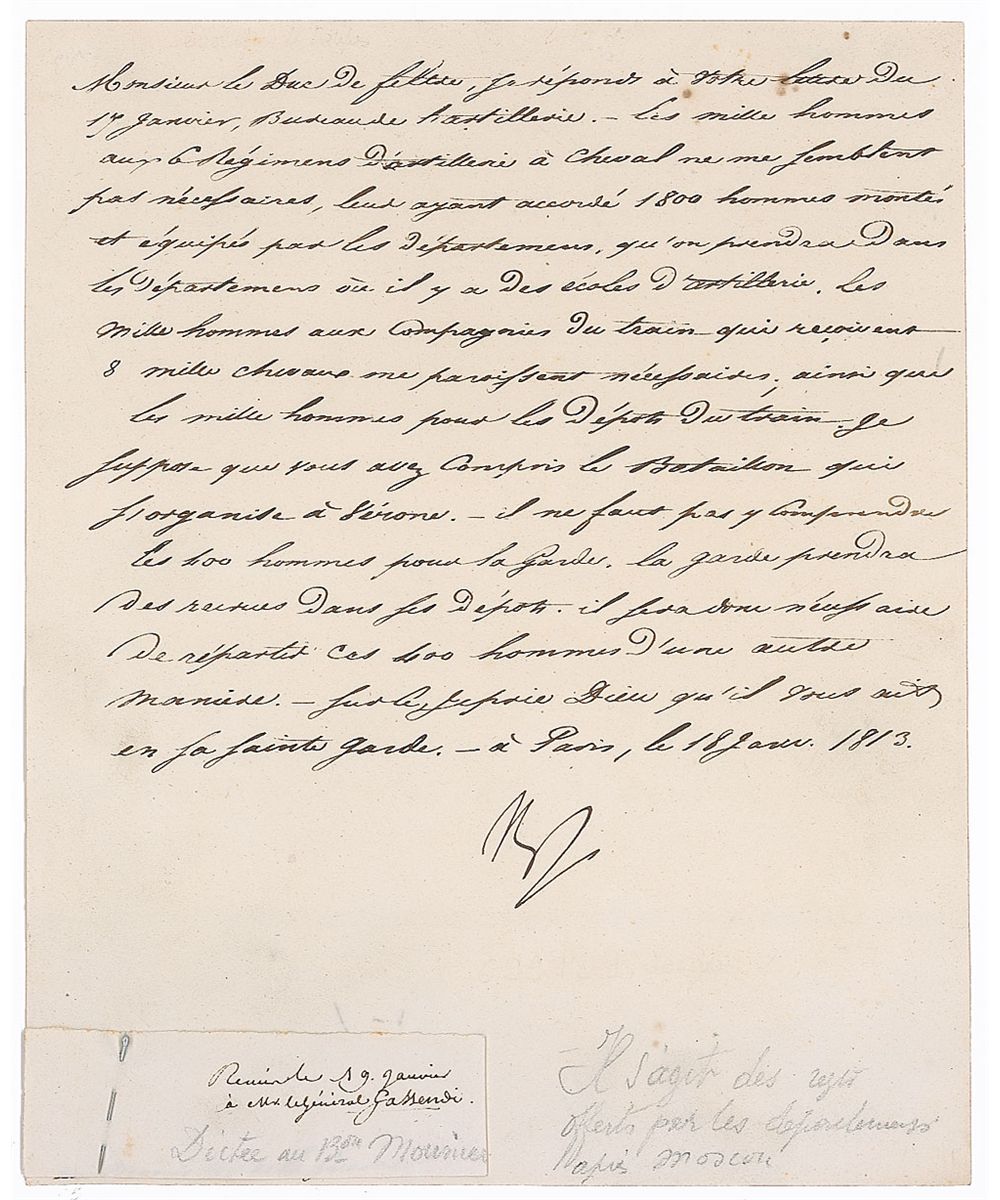 Monsieur le Duc de feltre, je réponds à Votre lettre du
17 Janvier, Bureau de l'artillerie. — Les mille hommes
aux 6 Régimens d'artillerie à Cheval ne me semblent
pas nécessaires, leur ayant accordé 1800 hommes montés
et équipés par les départemens, qu'on prendra dans
les départemens où il y a des écoles d'artillerie. Les
mille hommes aux Compagnies du train qui reçoivent
8 mille chevaux me paroissent nécessaires, ainsi que
les mille hommes pour les Dépots du train. Je
suppose que vous avez Compris le Bataillon qui
s'organise à Vérone. — il ne faut pas y Comprendre
les 400 hommes pour la Garde. la garde prendra
des recrues dans ses dépots. il sera donc nécessaire
de répartir ces 400 hommes d'une autre
manière. — sur ce, je prie Dieu qu'il vous ait
en sa sainte garde. — à Paris, le 18 Janv. 1813.
Remis le 19. janvier
à Mr. le Général Gassendi.
Dictée au Bon Mounier
— Il s'agit des
offerts par les départements
après Moscou